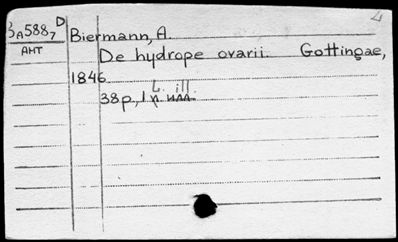 3A5887 D
Biermann, A.
AHT
De hydrope ovarii. Gottingae,
1846
38p., 1 l. ill.